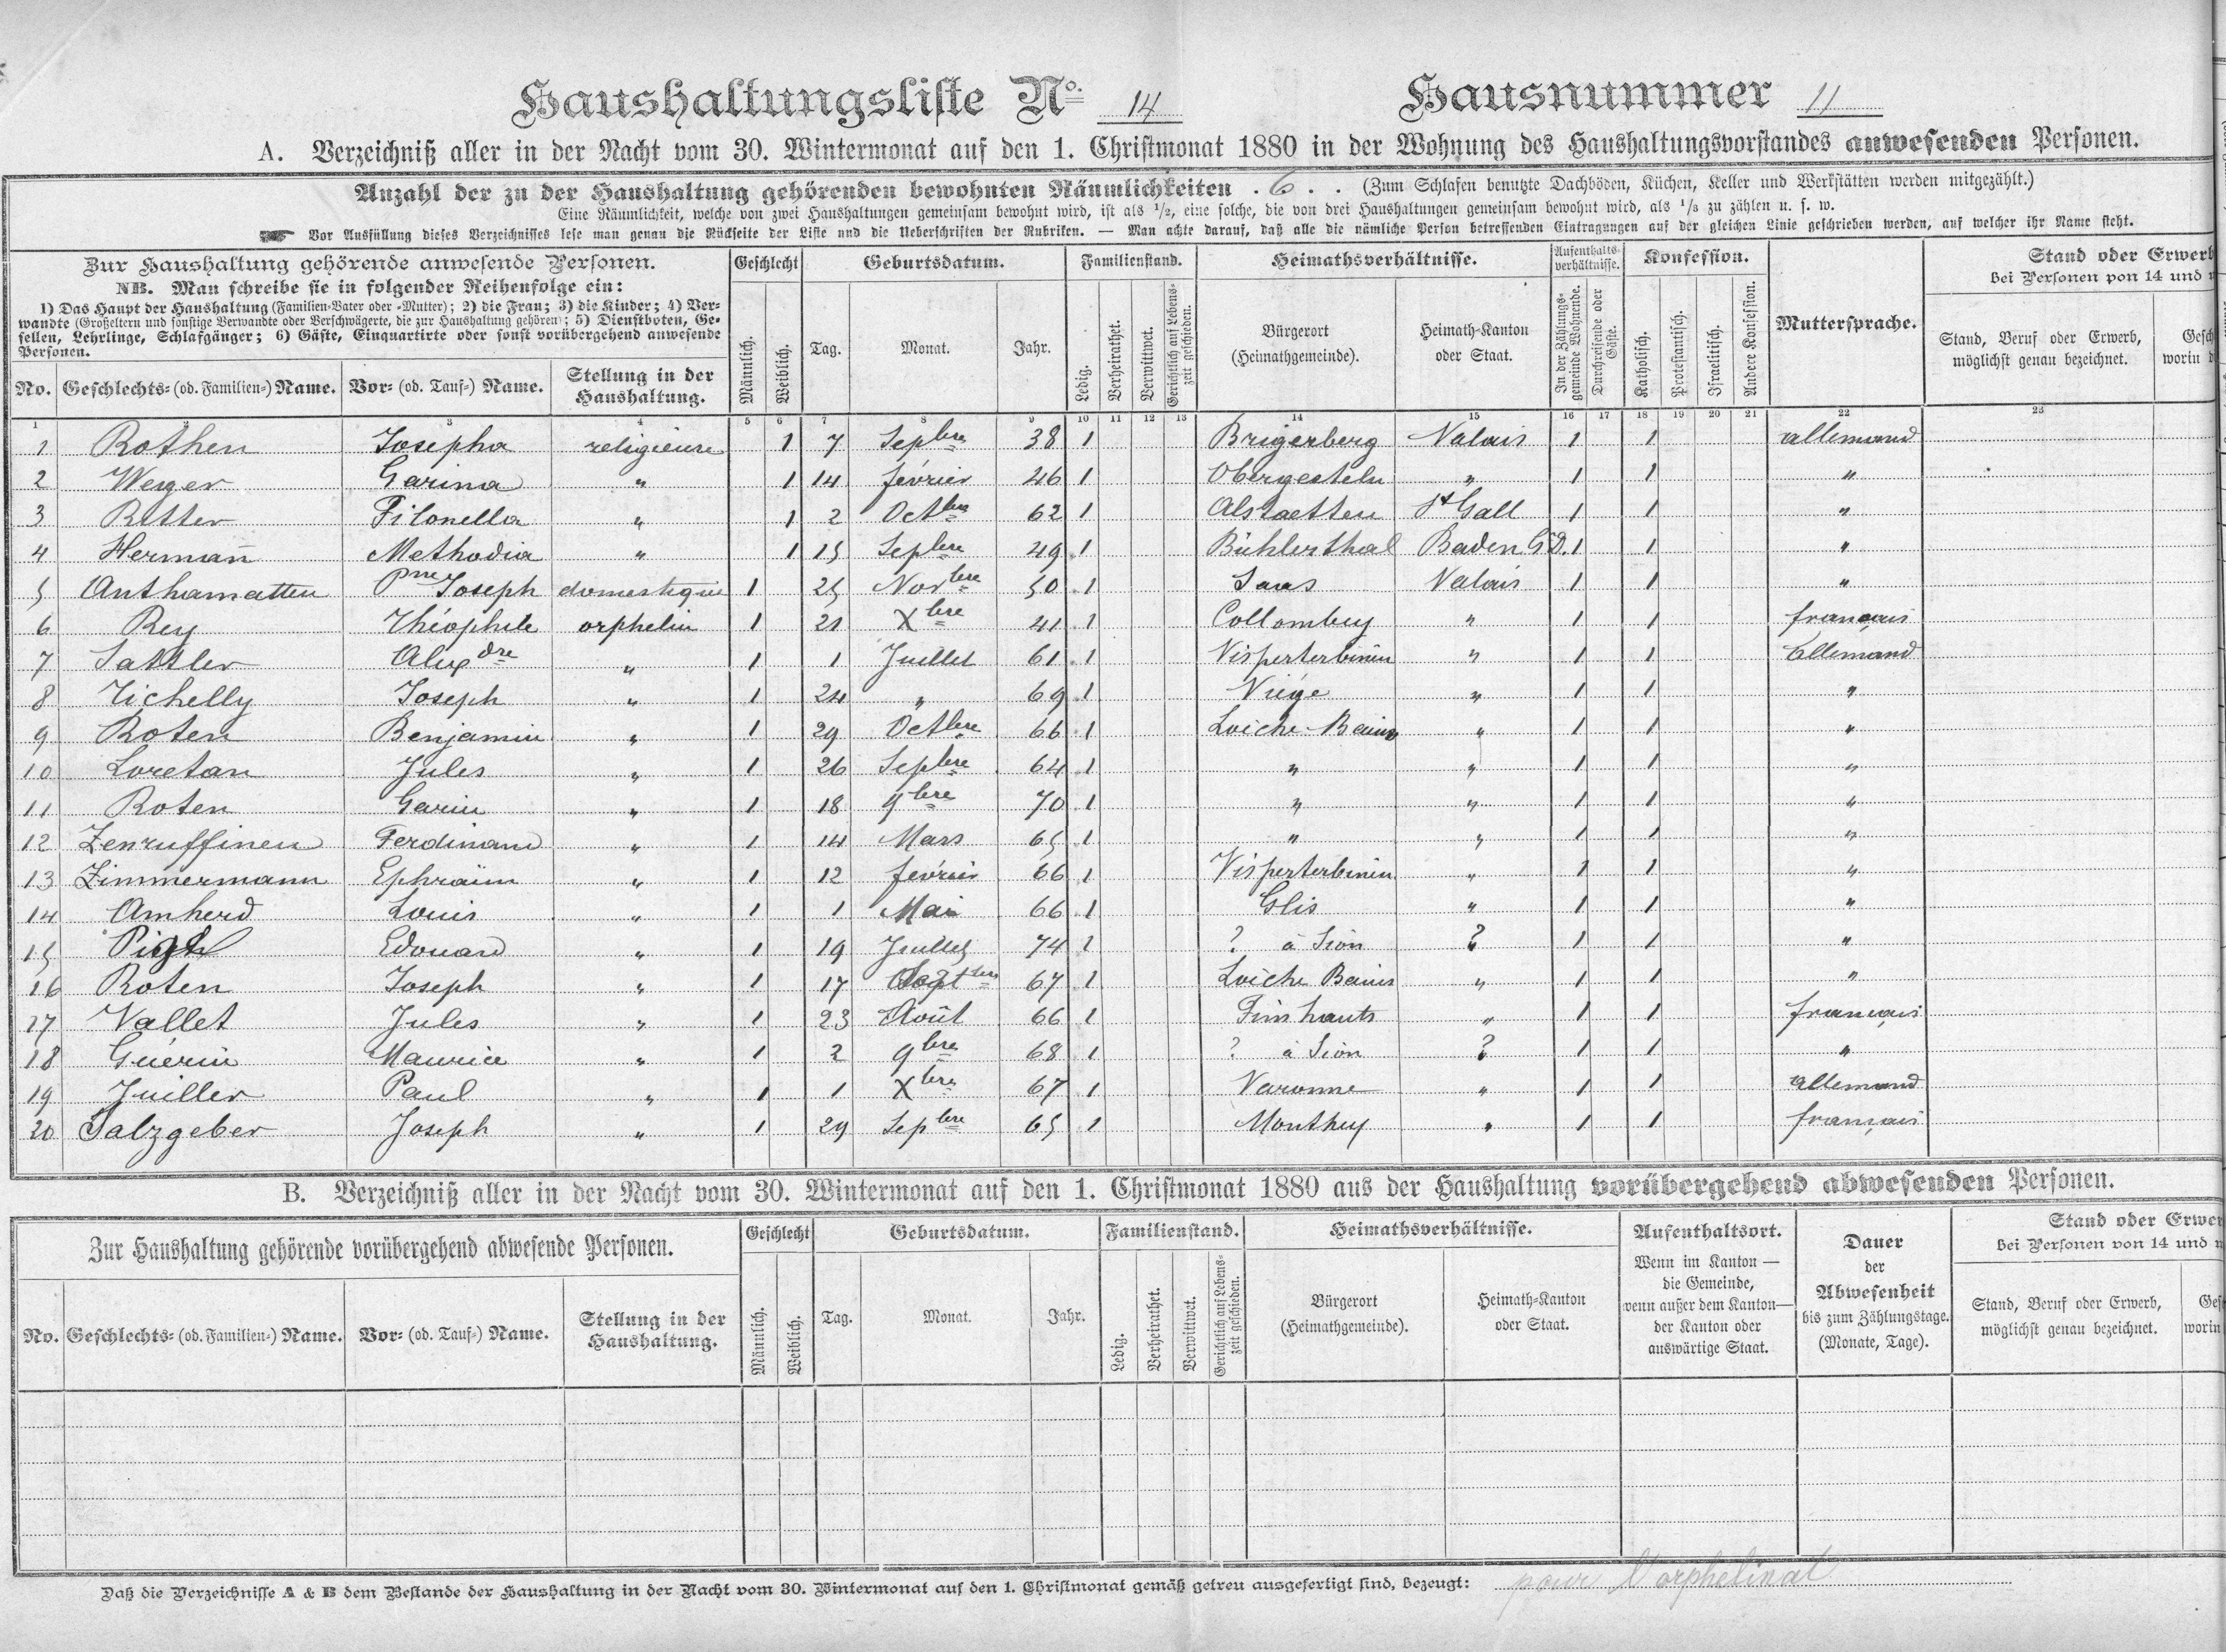 Haushaltungsliste No. 14 Hausnummer 11
A. Verzeichniß aller in der Nacht vom 30. Wintermonat auf den 1. Christmonat 1880 in der Wohnung des Haushaltungsvorstandes anwesenden Personen.
Anzahl der zu der Haushaltung gehörenden bewohnten Räumlichkeiten . 6 . . (Zum Schlafen benutzte Dachböden, Küchen, Keller und Werkstätten werden mitgezählt.)
Eine Räumlichkeit, welche von zwei Haushaltungen gemeinsam bewohnt wird, ist als 1/2, eine solche, die von drei Haushaltungen gemeinsam bewohnt wird, als 1/3 zu zählen u. s. w.
Vor Ausfüllung dieses Verzeichnisses lese man genau die Rückseite der Liste und die Ueberschriften der Rubriken. — Man achte darauf, daß alle die nämliche Person betreffenden Eintragungen auf der gleichen Linie geschrieben werden, auf welcher ihr Name steht.
Zur Haushaltung gehörende anwesende Personen. Geschlecht Geburtsdatum. Familienstand. Heimathsverhältnisse. Aufenthalts-verhältnisse. Konfession. Muttersprache. Stand oder Erwerb
bei Personen von 14 und
NB. Man schreibe sie in folgender Reihenfolge ein:
1) Das Haupt der Haushaltung (Familien-Vater oder -Mutter); 2) die Frau; 3) die Kinder; 4) Ver-
wandte (Großeltern und sonstige Verwandte oder Verschwägerte, die zur Haushaltung gehören); 5) Dienstboten, Ge-
sellen, Lehrlinge, Schlafgänger; 6) Gäste, Einquartirte oder sonst vorübergehend anwesende
Personen.
No. Geschlechts- (od. Familien-) Name. Vor- (od. Tauf-) Name. Stellung in der Haushaltung. Männlich. Weiblich. Tag. Monat. Jahr. Ledig. Verheirathet. Verwittwet. Gerichtlich auf Lebenszeit geschieden. Bürgerort (Heimathgemeinde). Heimath-Kanton oder Staat. In der Zählungsgemeinde Wohnende. Durchreisende oder Gäste. Katholisch. Protestantisch. Israelitisch. Andere Konfession. Stand, Beruf oder Erwerb, möglichst genau bezeichnet.
1 2 3 4 5 6 7 8 9 10 11 12 13 14 15 16 17 18 19 20 21 22 23
1 Rothen Josepha religieuse 1 7 Sepbre 38 1 Brigerberg Valais 1 1 allemand
2 Werger Garina " 1 14 février 46 1 Obergesteln " 1 1 "
3 Ritter Filonella " 1 2 Octbre 62 1 Alstaetten St Gall 1 1 "
4 Herman̄ Methodia " 1 15 Sepbre 49 1 Bühlerthal Baden G.D. 1 1 "
5 Anthamatten Prre Joseph domestique 1 25 Novbre 50 1 Saas Valais 1 1 "
6 Rey Théophile orphelin 1 21 Xbre 41 1 Collombey " 1 1 français
7 Sattler Alexdre " 1 1 Juillet 61 1 Visperterbinen " 1 1 allemand
8 Tichelly Joseph " 1 24 " 69 1 Viége " 1 1 "
9 Roten Benjamin " 1 29 Octbre 66 1 Loiche-Bains " 1 1 "
10 Loretan Jules " 1 26 Sepbre 64 1 " " 1 1 "
11 Roten Garin " 1 18 9bre 70 1 " " 1 1 "
12 Zenruffinen Ferdinand " 1 14 Mars 65 1 " " 1 1 "
13 Zimmermann Ephraïm " 1 12 février 66 1 Visperterbinen " 1 1 "
14 Amherd Louis " 1 1 Mai 66 1 Glis " 1 1 "
15 Edouard " 1 19 Juillet 74 1 ? à Sion ? 1 1 "
16 Roten Joseph " 1 17 67 1 Loiche Bains " 1 1 "
17 Vallet Jules " 1 23 Août 66 1 Finshauts " 1 1 français
18 Guérin Maurice " 1 2 9bre 68 1 ? à Sion ? 1 1 "
19 Juiller Paul " 1 1 Xbre 67 1 Varonne " 1 1 allemand
20 Salzgeber Joseph " 1 29 Sepbre 65 1 Monthey " 1 1 français
B. Verzeichniß aller in der Nacht vom 30. Wintermonat auf den 1. Christmonat 1880 aus der Haushaltung vorübergehend abwesenden Personen.
Zur Haushaltung gehörende vorübergehend abwesende Personen. Geschlecht Geburtsdatum. Familienstand. Heimathsverhältnisse. Aufenthaltsort. Dauer der Abwesenheit bis zum Zählungstage. (Monate, Tage). Stand oder Erwer
bei Personen von 14 und
Wenn im Kanton — die Gemeinde, wenn außer dem Kanton — der Kanton oder auswärtige Staat.
No. Geschlechts- (od. Familien-) Name. Vor- (od. Tauf-) Name. Stellung in der Haushaltung. Männlich. Weiblich. Tag. Monat. Jahr. Ledig. Verheirathet. Verwittwet. Gerichtlich auf Lebenszeit geschieden. Bürgerort (Heimathgemeinde). Heimath-Kanton oder Staat. Stand, Beruf oder Erwerb, möglichst genau bezeichnet.
Daß die Verzeichnisse A & B dem Bestande der Haushaltung in der Nacht vom 30. Wintermonat auf den 1. Christmonat gemäß getreu ausgefertigt sind, bezeugt: pour l'orphelinat